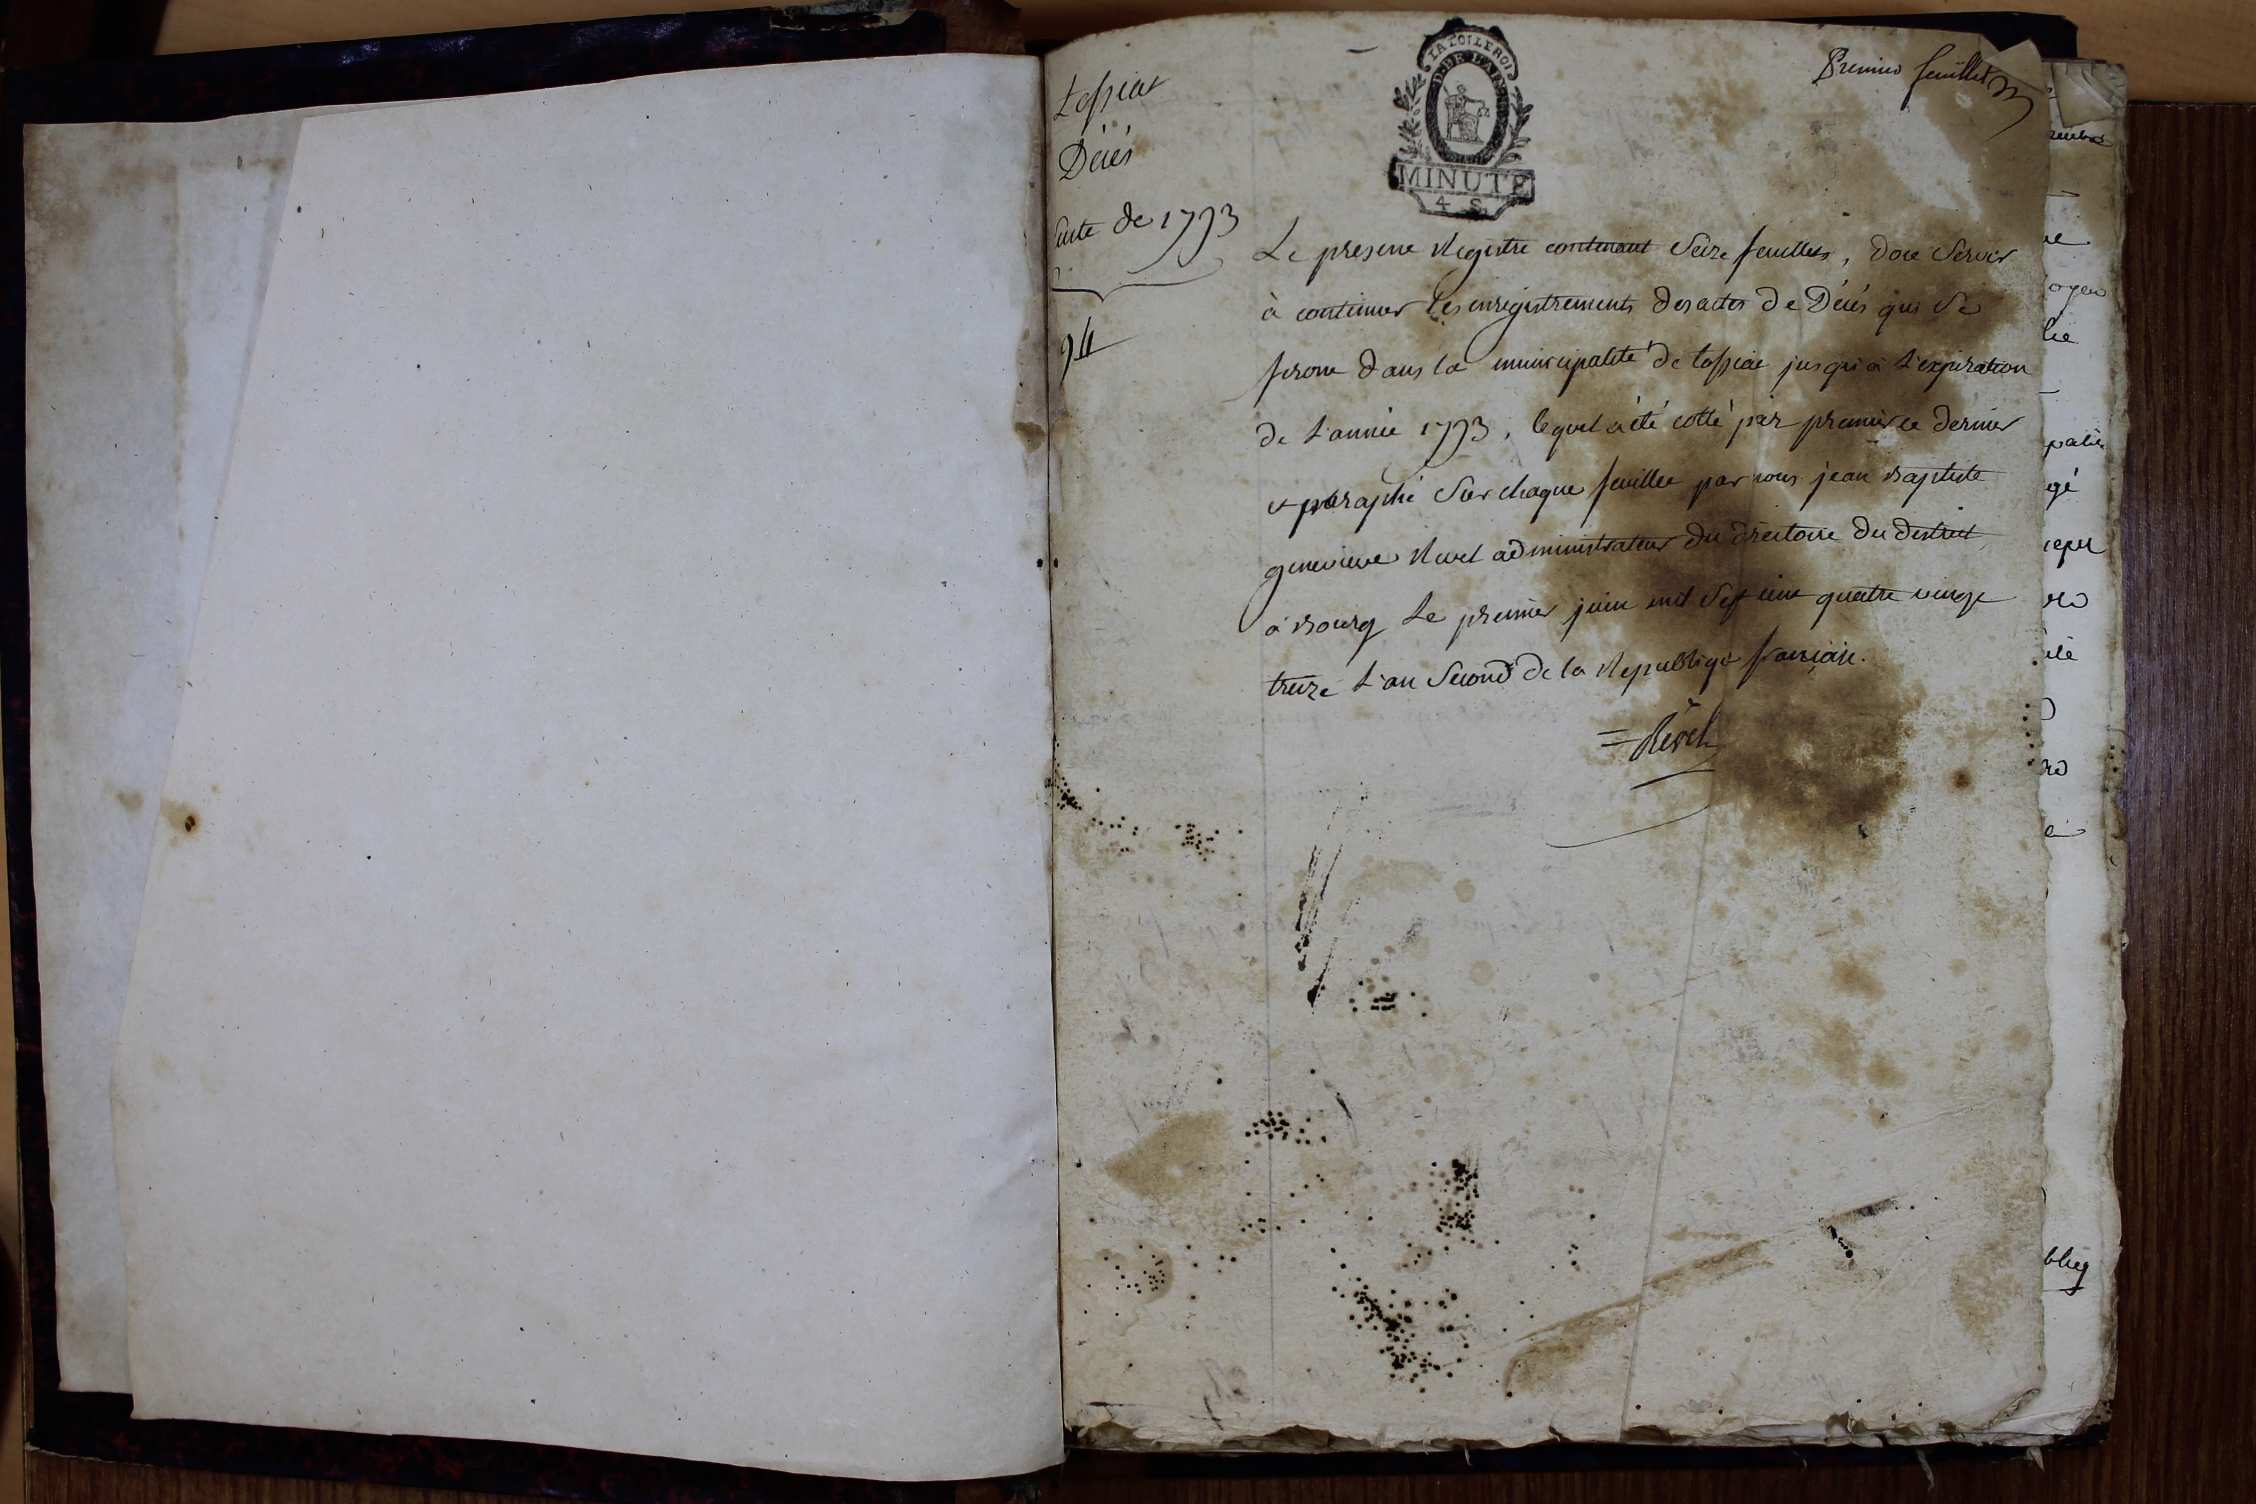 Tossiat
Décés
suitte de 1793
LA LOI LE ROI
D. DE L'AIN
MINUTE
4 S.
Premier feuillet
Le present Registre contenant Seize feuillets, doit Servir
à continuer les enregistrements des actes de Décés qui Se
feront dans la municipalité de tossiat jusqu'à L'expiration
de L'année 1793, lequel a été cotté par premier et dernier
et paraphé Sur chaque feuillet par nous jean Baptiste
genevieve Revel administrateur du directoire du district
à Bourg Le premier juin mil Sept cent quatre vingt
treize L'an Second de la Republique française.
Revel